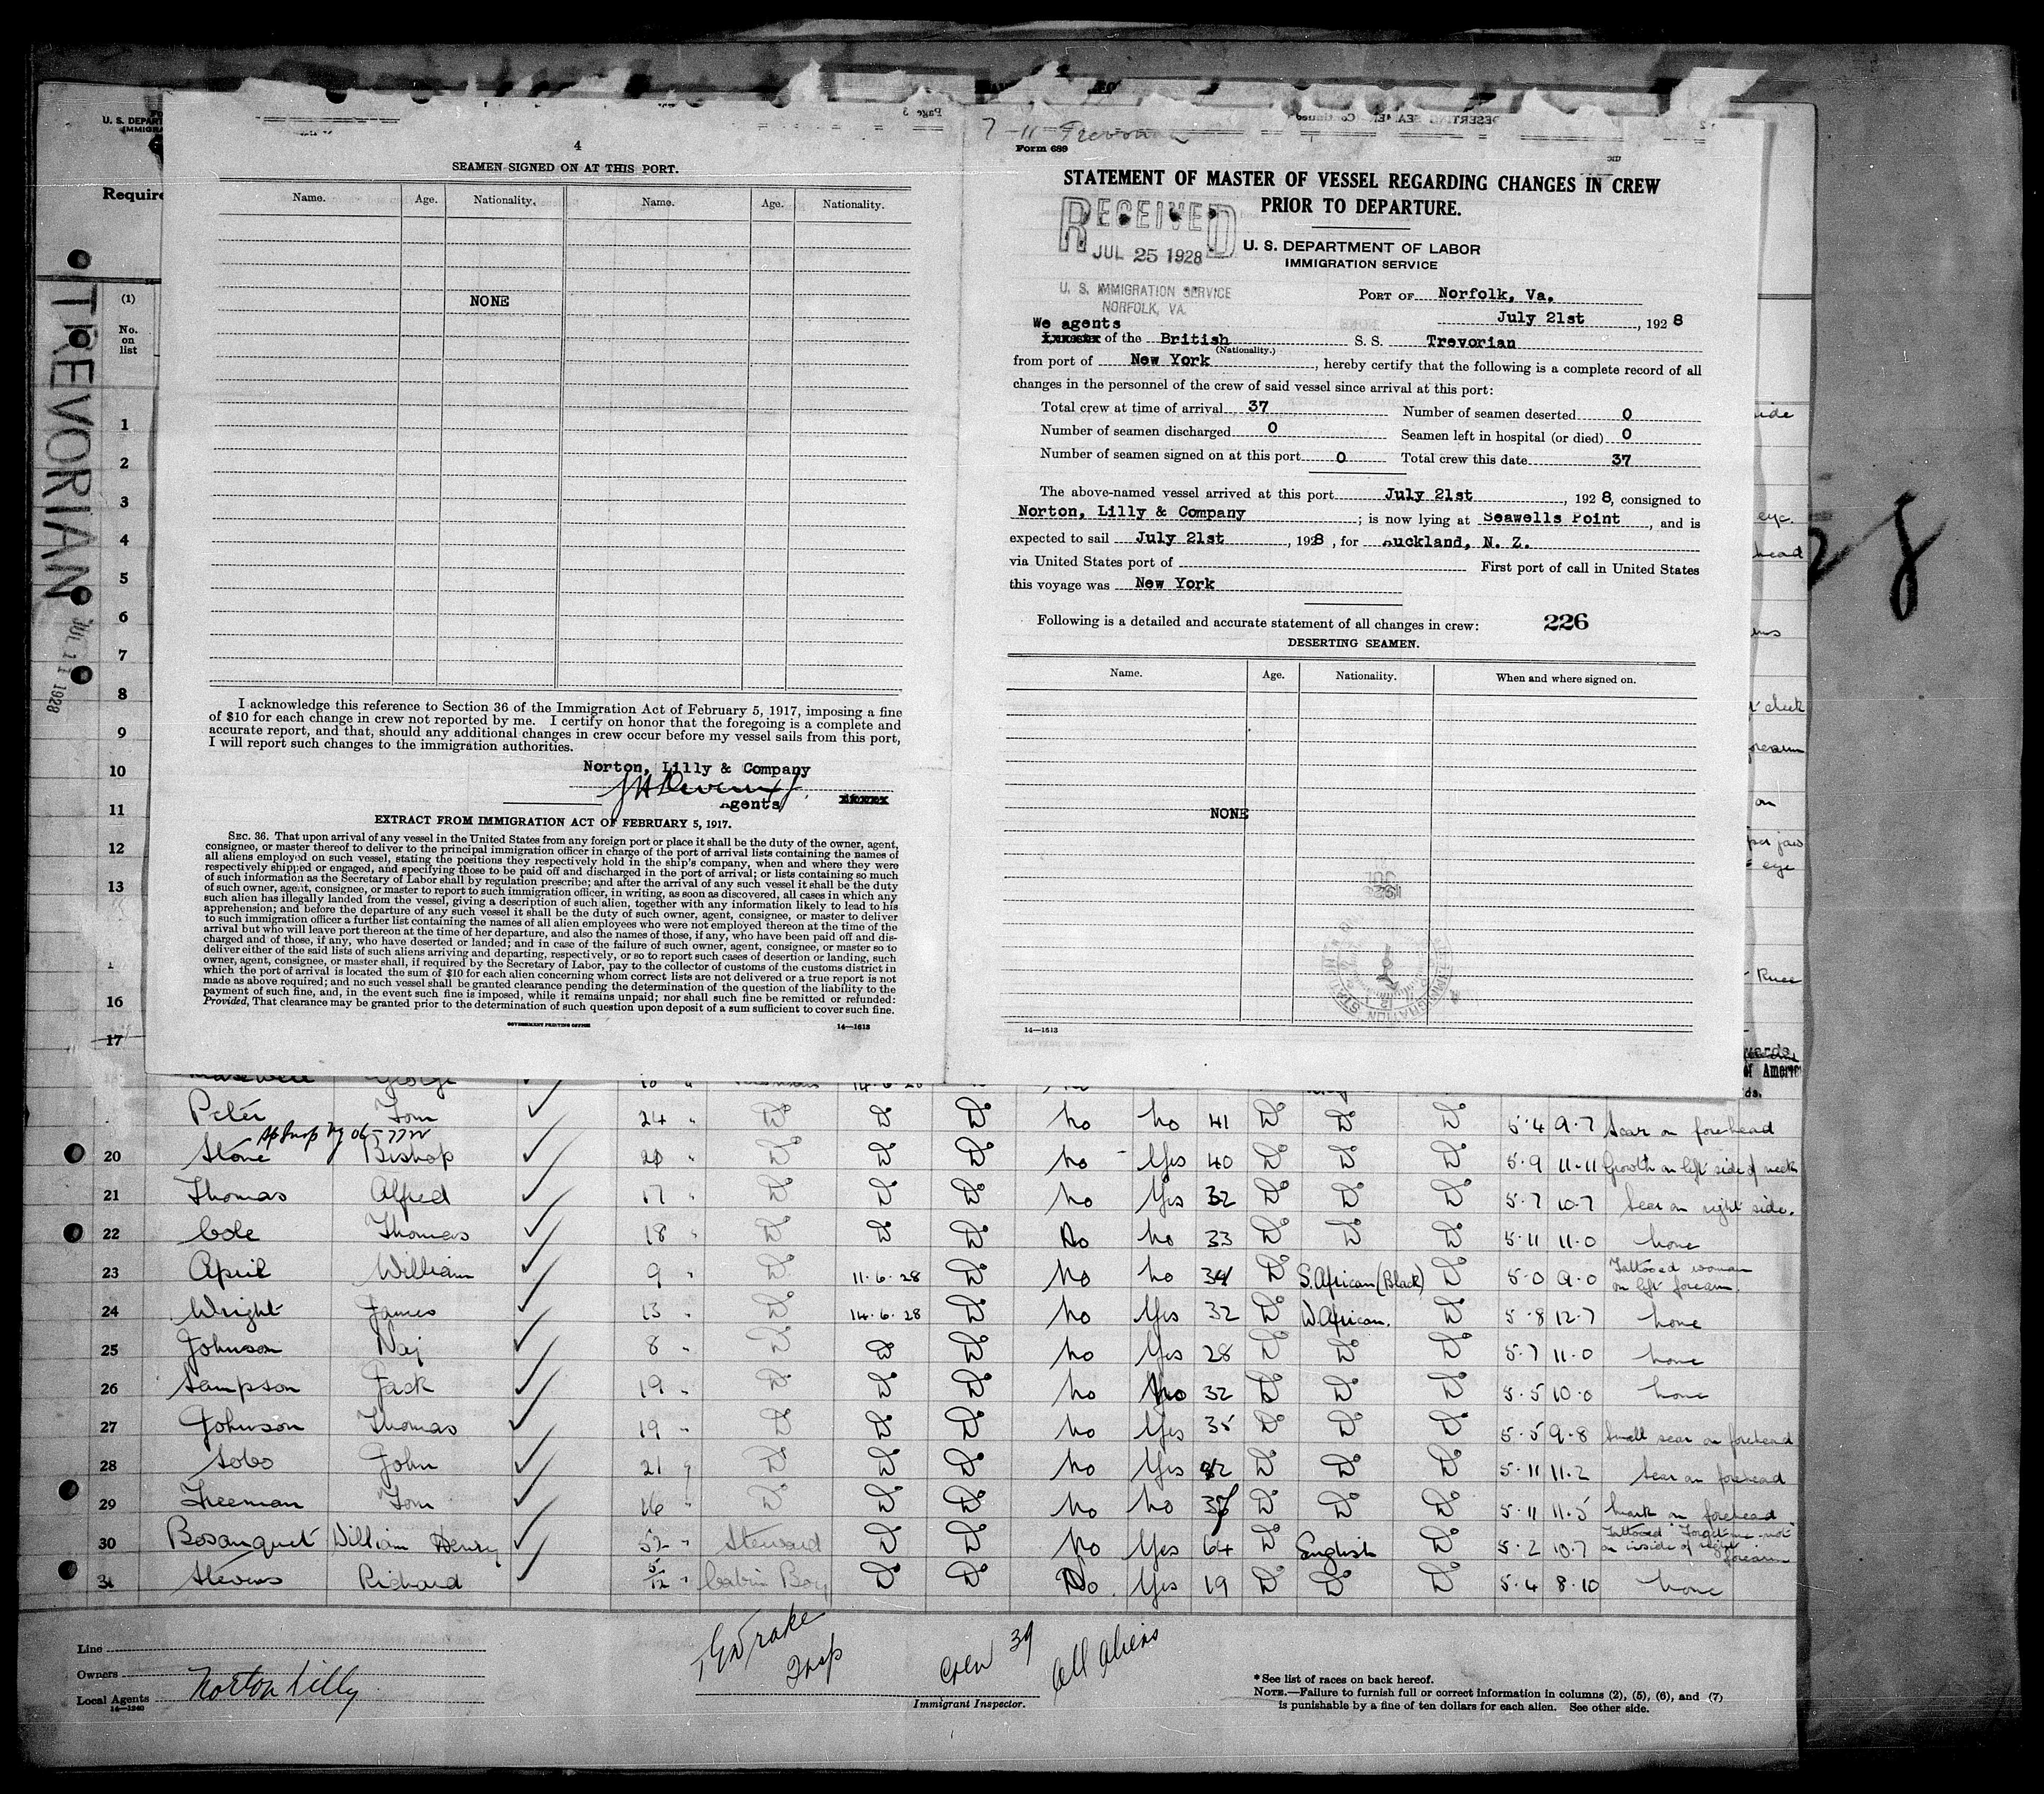 4
SEAMEN SIGNED ON AT THIS PORT.
Name. Age. Nationality. Name. Age. Nationality.
NONE
I acknowledge this reference to Section 36 of the Immigration Act of February 5, 1917, imposing a fine
of $10 for each change in crew not reported by me. I certify on honor that the foregoing is a complete and
accurate report, and that, should any additional changes in crew occur before my vessel sails from this port,
I will report such changes to the immigration authorities.
Norton, Lilly & Company
Agents
EXTRACT FROM IMMIGRATION ACT OF FEBRUARY 5, 1917.
SEC. 36. That upon arrival of any vessel in the United States from any foreign port or place it shall be the duty of the owner, agent,
consignee, or master thereof to deliver to the principal immigration officer in charge of the port of arrival lists containing the names of
all aliens employed on such vessel, stating the positions they respectively hold in the ship's company, when and where they were
respectively shipped or engaged, and specifying those to be paid off and discharged in the port of arrival; or lists containing so much
of such information as the Secretary of Labor shall by regulation prescribe; and after the arrival of any such vessel it shall be the duty
of such owner, agent, consignee, or master to report to such immigration officer, in writing, as soon as discovered, all cases in which any
such alien has illegally landed from the vessel, giving a description of such alien, together with any information likely to lead to his
apprehension; and before the departure of any such vessel it shall be the duty of such owner, agent, consignee, or master to deliver
to such immigration officer a further list containing the names of all alien employees who were not employed thereon at the time of the
arrival but who will leave port thereon at the time of her departure, and also the names of those, if any, who have been paid off and dis-
charged and of those, if any, who have deserted or landed; and in case of the failure of such owner, agent, consignee, or master so to
deliver either of the said lists of such aliens arriving and departing, respectively, or so to report such cases of desertion or landing, such
owner, agent, consignee, or master shall, if required by the Secretary of Labor, pay to the collector of customs of the customs district in
which the port of arrival is located the sum of $10 for each alien concerning whom correct lists are not delivered or a true report is not
made as above required; and no such vessel shall be granted clearance pending the determination of the question of the liability to the
payment of such fine, and, in the event such fine is imposed, while it remains unpaid; nor shall such fine be remitted or refunded:
Provided, That clearance may be granted prior to the determination of such question upon deposit of a sum sufficient to cover such fine.
GOVERNMENT PRINTING OFFICE 14—1613
7-11 Trevorian
Form 689
STATEMENT OF MASTER OF VESSEL REGARDING CHANGES IN CREW
PRIOR TO DEPARTURE.
RECEIVED
JUL 25 1928
U. S. IMMIGRATION SERVICE
NORFOLK, VA.
U. S. DEPARTMENT OF LABOR
IMMIGRATION SERVICE
PORT OF Norfolk, Va.
July 21st, 1928
We agents
of the British S. S. Trevorian
(Nationality.)
from port of New York, hereby certify that the following is a complete record of all
changes in the personnel of the crew of said vessel since arrival at this port:
Total crew at time of arrival 37 Number of seamen deserted 0
Number of seamen discharged 0 Seamen left in hospital (or died) 0
Number of seamen signed on at this port 0 Total crew this date 37
The above-named vessel arrived at this port July 21st, 1928, consigned to
Norton, Lilly & Company; is now lying at Seawells Point, and is
expected to sail July 21st, 1928, for Auckland, N. Z.
via United States port of First port of call in United States
this voyage was New York
Following is a detailed and accurate statement of all changes in crew: 226
DESERTING SEAMEN.
Name. Age. Nationality. When and where signed on.
NONE
14—1613
U. S. DEPAR
IMMIGRA
Require
TREVORIAN JUL 11 1928
(1)
No.
on
list
1
2
3
4
5
6
7
8
9
10
11
12
13
16
17
28
Maxwell George
Peter Tom 24 " Do Do Do No No 41 Do Do Do 5·4 9·7 Scar on forehead
20 Stone Bishop Do Do Do No Yes 40 Do Do Do 5·9 11·11 Growth on left side of neck
21 Thomas Alfred 17 " Do Do Do No Yes 32 Do Do Do 5·7 10·7 Scar on right side.
22 Cole Thomas 18 " Do Do Do No No 33 Do Do Do 5·11 11·0 none
23 April William 9 " Do 11·6·28 Do No No 34 Do S.African (Black) Do 5·0 9·0 Tattooed woman on left forearm.
24 Wright James 13 " Do 14·6·28 Do No Yes 32 Do W.African. Do 5·8 12·7 none
25 Johnson Naj 8 " Do Do Do No Yes 28 Do Do Do 5·7 11·0 none
26 Sampson Jack 19 " Do Do Do No No 32 Do Do Do 5·5 10·0 none
27 Johnson Thomas 19 " Do Do Do No Yes 35 Do Do Do 5·5 9·8 Small scar on forehead
28 Sobo John 21 " Do Do Do No Yes Do Do Do 5·11 11·2 Scar on forehead
29 Freeman Tom 16 " Do Do Do No No Do Do Do 5·11 11·5 Mark on forehead
30 Bosanquet William Henry 52 " Steward Do Do No Yes 64 Do English Do 5·2 10·7 Tattooed "Forget me not" on inside of right forearm
31 Stevens Richard 5/12 " Cabin Boy Do Do No. Yes 19 Do Do Do 5·4 8·10 none
Line
Owners
Local Agents Norton Lilly
14—1240
Drake
Insp
Crew 39
All Aliens
Immigrant Inspector.
*See list of races on back hereof.
NOTE.—Failure to furnish full or correct information in columns (2), (5), (6), and (7)
is punishable by a fine of ten dollars for each alien. See other side.